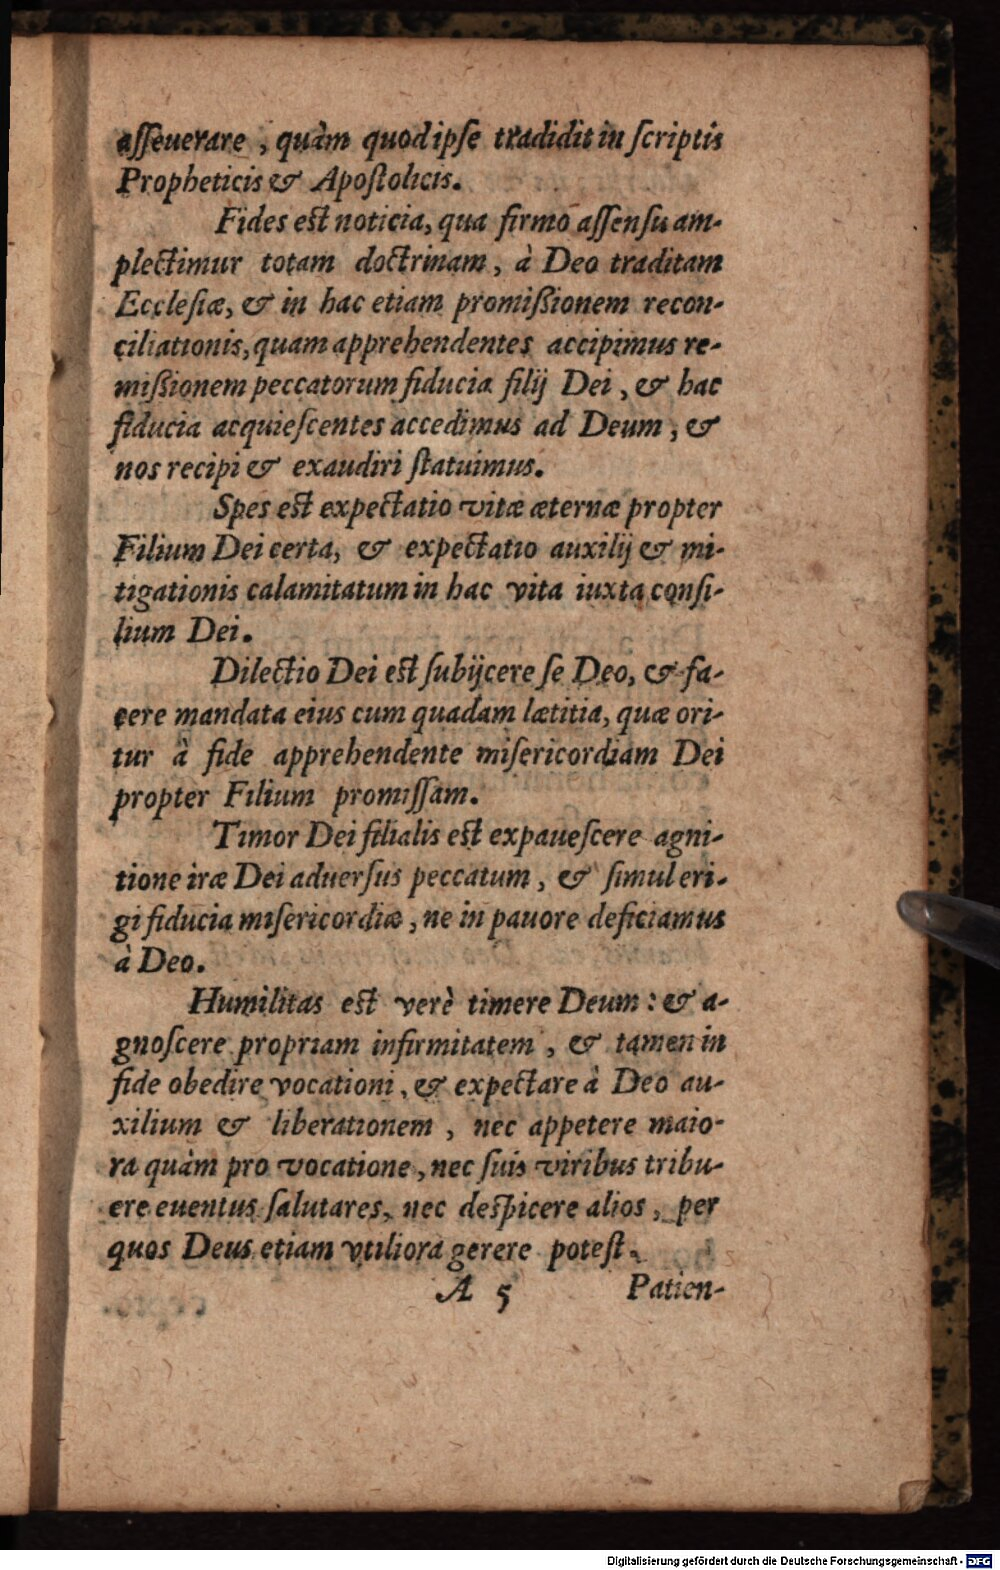 asseuerare, quàm quod ipse tradidit in scriptis
Propheticis & Apostolicis.
Fides est noticia, qua firmo assensu am-
plectimur totam doctrinam, à Deo traditam
Ecclesiæ, & in hac etiam promißionem recon-
ciliationis, quam apprehendentes accipimus re-
mißionem peccatorum fiducia filij Dei, & hac
fiducia acquiescentes accedimus ad Deum, &
nos recipi & exaudiri statuimus.
Spes est expectatio vitæ æternæ propter
Filium Dei certa, & expectatio auxilij & mi-
tigationis calamitatum in hac vita iuxta consi-
lium Dei.
Dilectio Dei est subijcere se Deo, & fa-
cere mandata eius cum quadam lætitia, quæ ori-
tur à fide apprehendente misericordiam Dei
propter Filium promissam.
Timor Dei filialis est expauescere agni-
tione iræ Dei aduersus peccatum, & simul eri-
gi fiducia misericordiæ, ne in pauore deficiamus
à Deo.
Humilitas est verè timere Deum: & a-
gnoscere propriam infirmitatem, & tamen in
fide obedire vocationi, & expectare à Deo au-
xilium & liberationem, nec appetere maio-
ra quàm pro vocatione, nec suis viribus tribu-
ere euentus salutares, nec despicere alios, per
quos Deus etiam vtiliora gerere potest.
A 5 Patien-
Digitalisierung gefördert durch die Deutsche Forschungsgemeinschaft - DFG